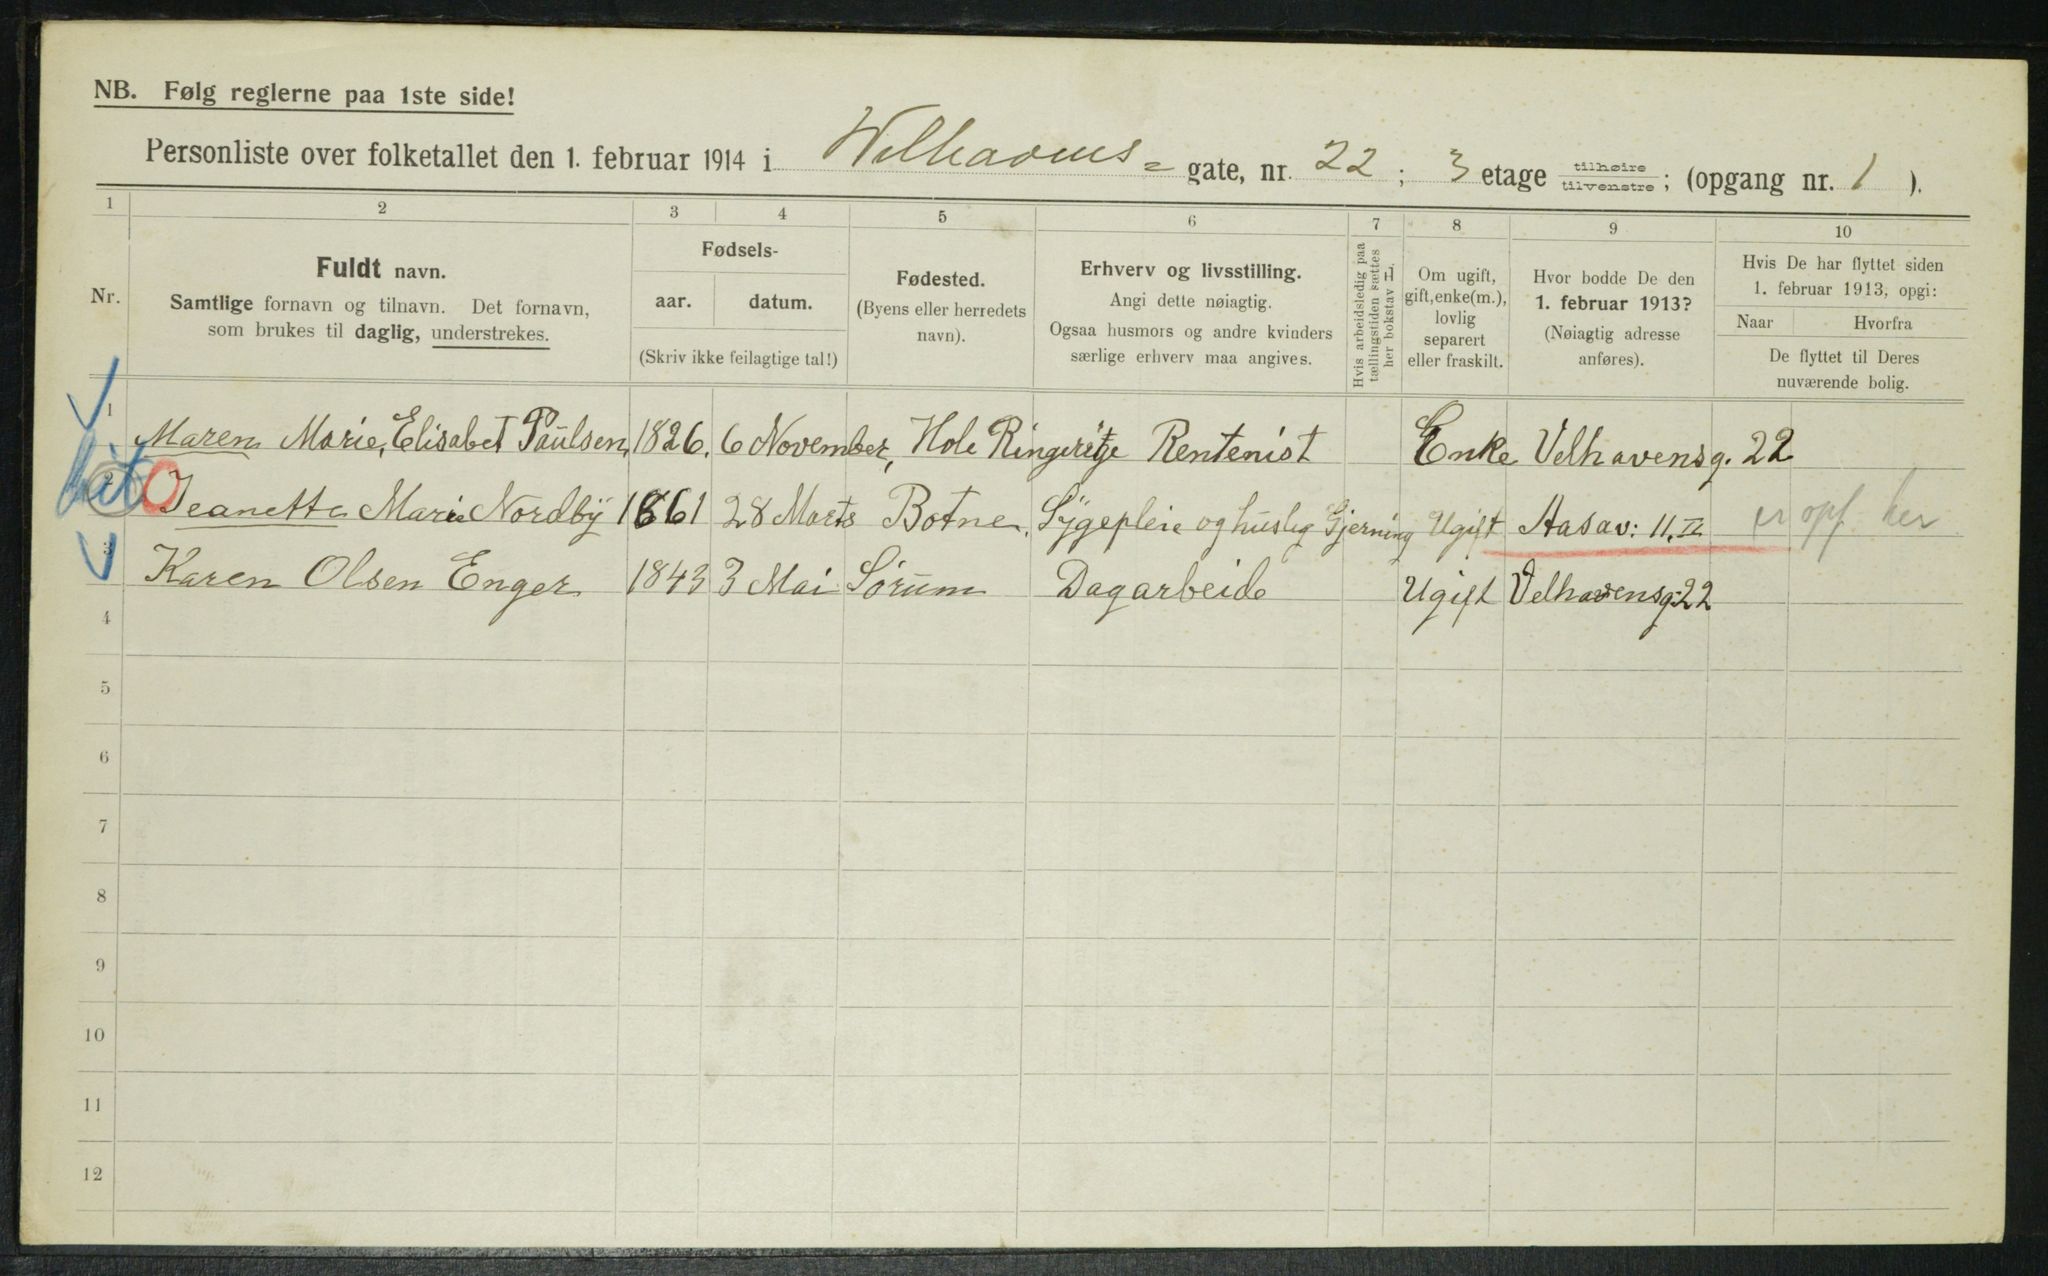 NB. Følg reglerne paa 1ste side!
Personliste over folketallet den 1. februar 1914 i Welhavens= gate, nr. 22 ; 3 etage tilhøire/tilvenstre ; (opgang nr. 1 ).
1 2 3 4 5 6 7 8 9 10
Nr.
Fuldt navn.
Samtlige fornavn og tilnavn. Det fornavn,
som brukes til daglig, understrekes.
Fødsels-
aar. datum.
(Skriv ikke feilagtige tal!)
Fødested.
(Byens eller herredets
navn).
Erhverv og livsstilling.
Angi dette nøiagtig.
Ogsaa husmors og andre kvinders
særlige erhverv maa angives.
Hvis arbeidsledig paa
tællingstiden sættes
her bokstav L.
Om ugift,
gift, enke(m.),
lovlig
separert
eller fraskilt.
Hvor bodde De den
1. februar 1913?
(Nøiagtig adresse
anføres).
Hvis De har flyttet siden
1. februar 1913, opgi:
Naar Hvorfra
De flyttet til Deres
nuværende bolig.
1 Maren Marie, Elisabet Paulsen, 1826. 6 November, Hole Ringerige Rentenist Enke Velhavensg. 22
2 Jeanette Marie Nordby 1861 28 Marts Botne. Sygepleie og huslig Gjerning Ugift Aasav: 11. II er opf. her
3 Karen Olsen Enger 1843 3 Mai Sørum Dagarbeide Ugift Velhavensg: 22
4
5
6
7
8
9
10
11
12